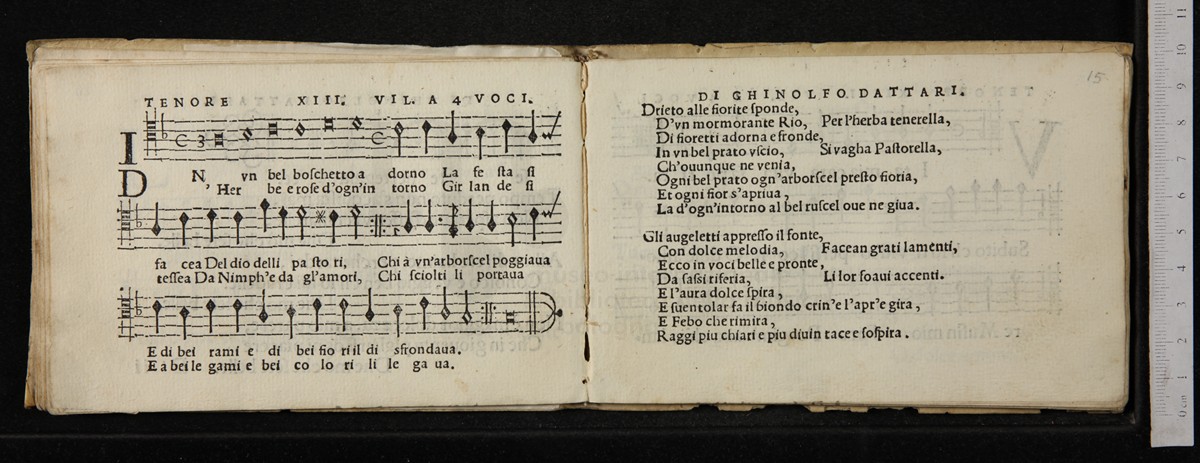 TENORE XIII. VIL. A 4 VOCI.
I N vn bel boschetto a dorno La fe sta si
D ' Her be e rose d'ogn'in torno Gir lan de si
fa cea Del dio delli pa sto ri, Chi à vn'arborscel poggiaua
tessea Da Nimph'e da gl'amori, Chi sciolti li portaua
E di bei rami e di bei fio ri il di sfrondaua.
E a bei le gami e bei co lo ri li le ga ua.
15
DI GHINOLFO DATTARI.
Drieto alle fiorite sponde,
D'vn mormorante Rio, Per l'herba tenerella,
Di fioretti adorna e fronde,
In vn bel prato vscio, Si vagha Pastorella,
Ch'ouunque ne venia,
Ogni bel prato ogn'arborscel presto fioria,
Et ogni fior s'apriua,
La d'ogn'intorno al bel ruscel oue ne giua.
Gli augeletti appresso il fonte,
Con dolce melodia, Facean grati lamenti,
Ecco in voci belle e pronte,
Da sassi riferia, Li lor soaui accenti.
E l'aura dolce spira,
E suentolar fa il biondo crin'e l'apr'e gira,
E Febo che rimira,
Raggi piu chiari e piu diuin tace e sospira.
0 cm 1 2 3 4 5 6 7 8 9 10 11